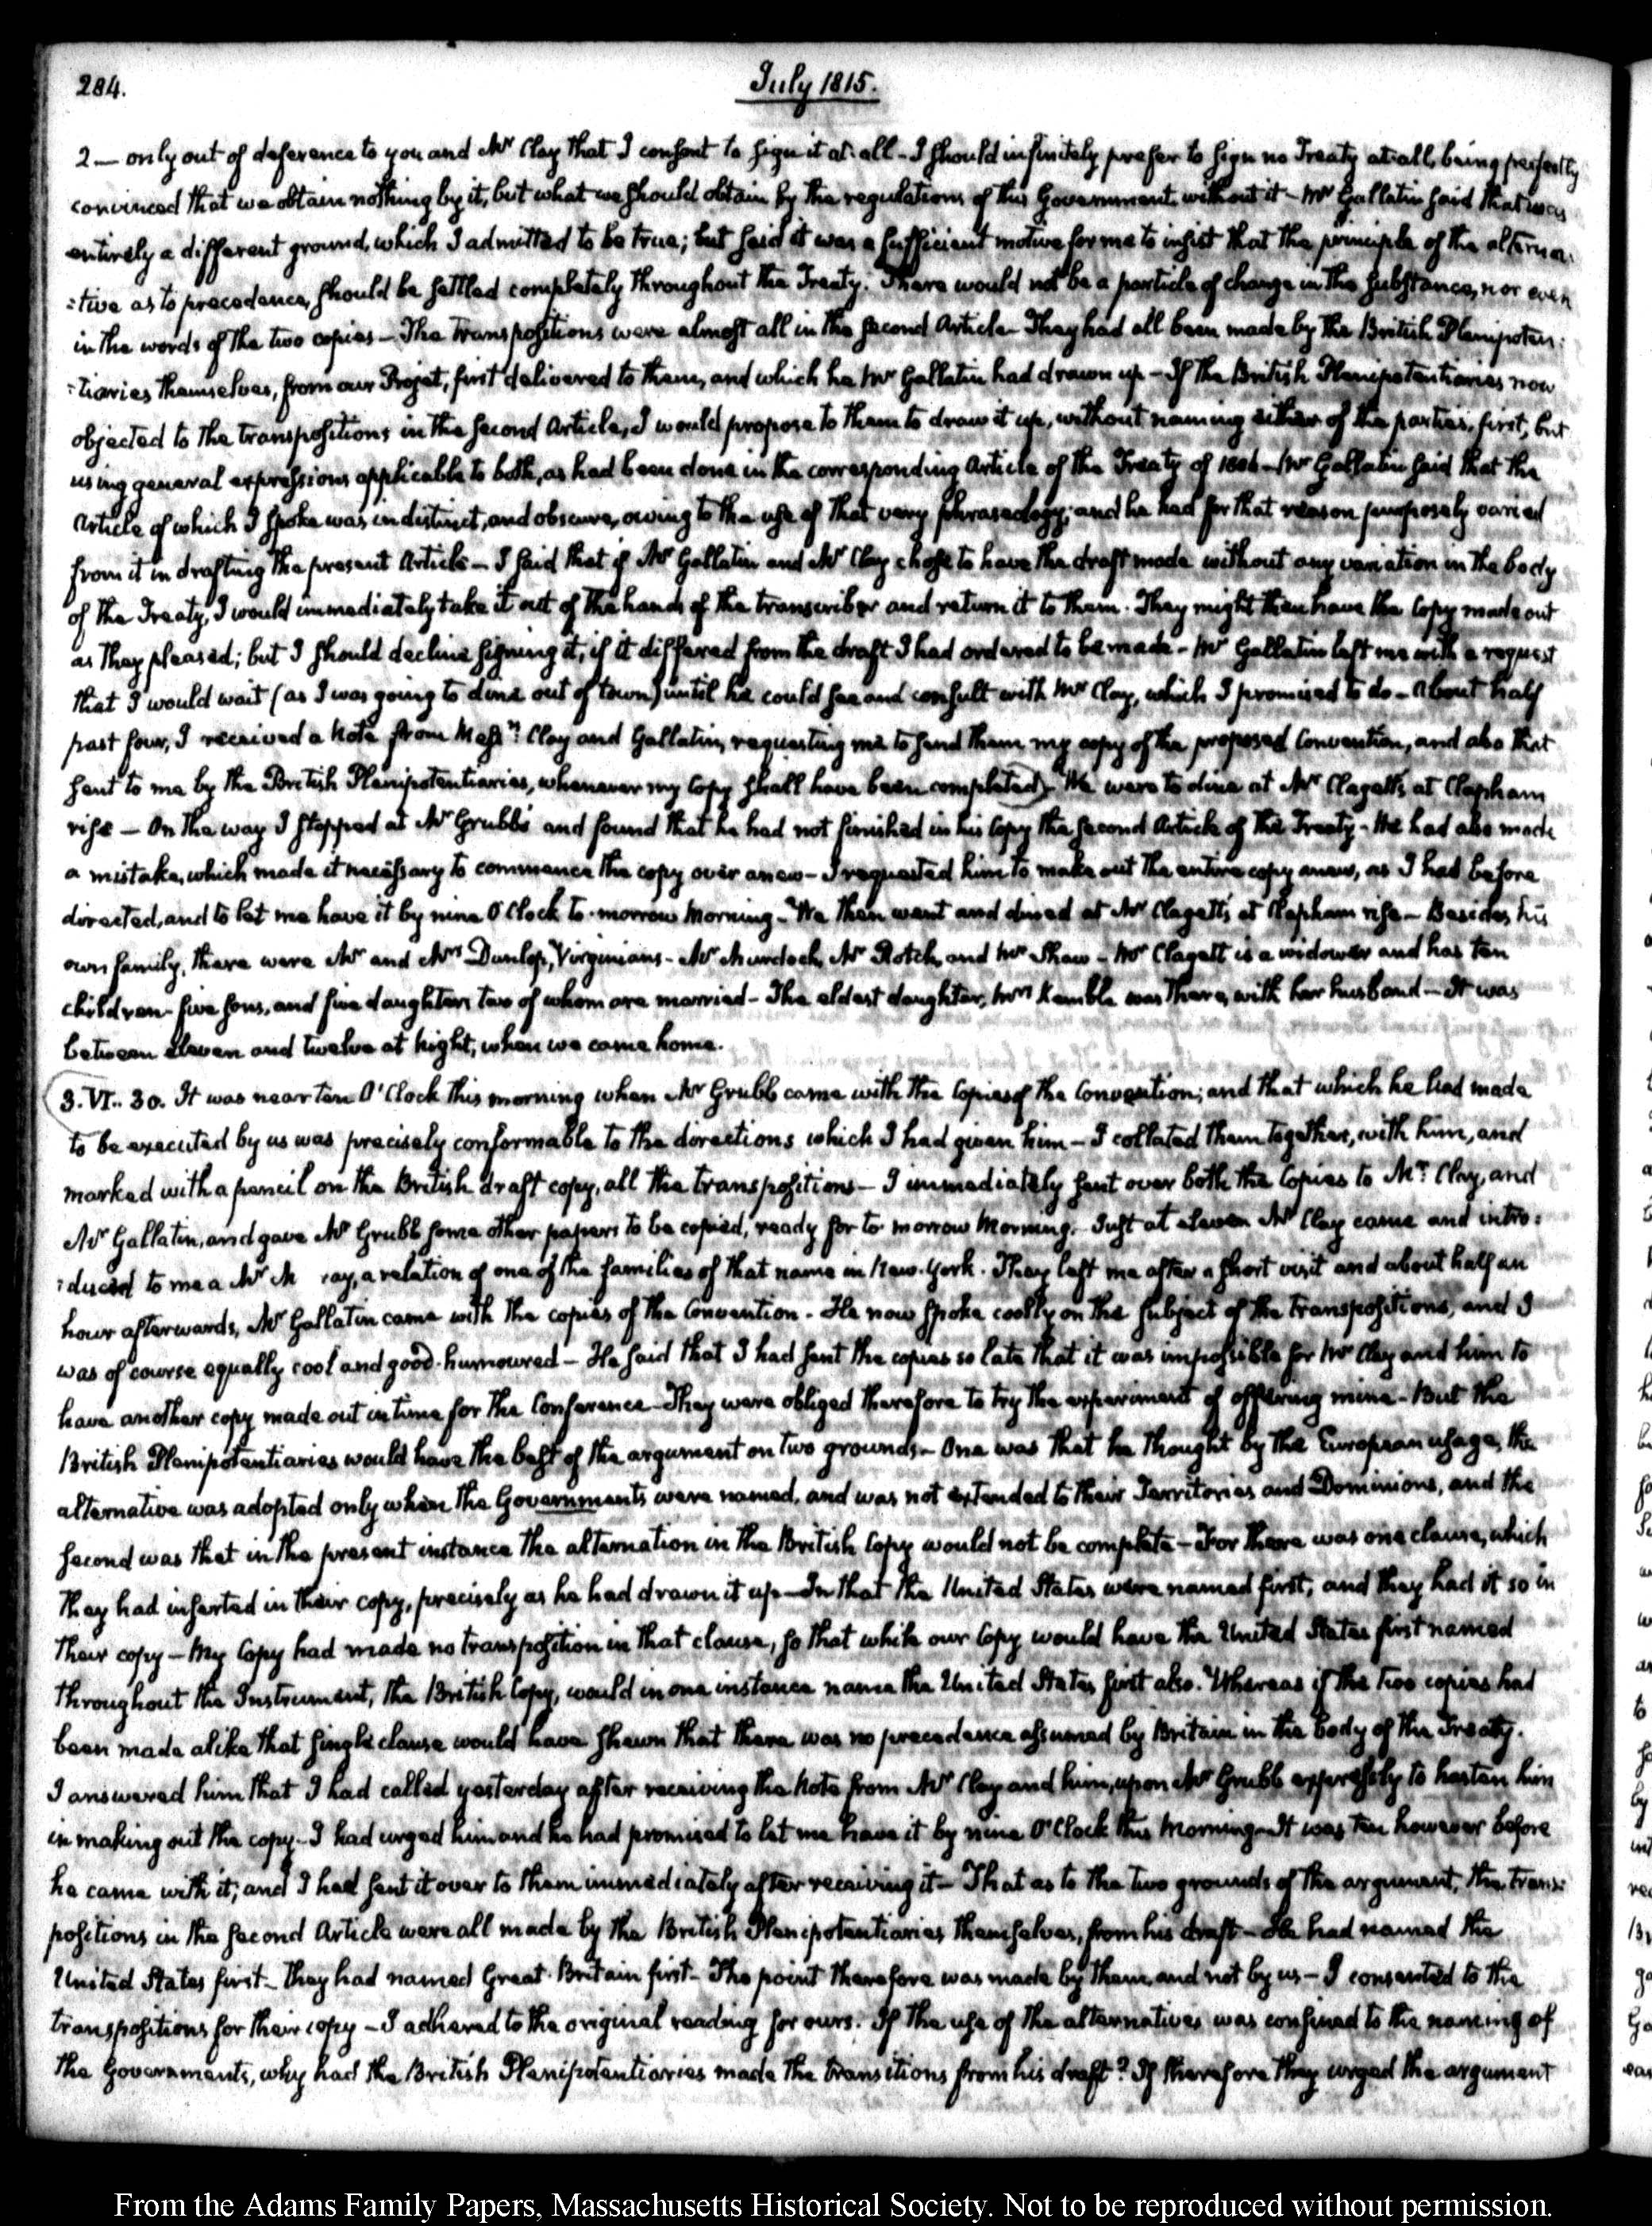 284.
July 1815.
2 — only out of deference to you and Mr Clay that I consent to sign it at all - I should infinitely prefer to sign no Treaty at all, being perfectly
convinced that we obtain nothing by it, but what we should obtain by the regulations of this Government without it - Mr Gallatin said that was
entirely a different ground, which I admitted to be true; but said it was a sufficient motive for me to insist that the principle of the alterna:
:tive as to precedence, should be settled completely throughout the Treaty. There would not be a particle of change in the substance, nor even
in the words of the two copies - The transpositions were almost all in the second Article - They had all been made by the British Plenipoten:
:tiaries themselves, from our Projet, first delivered to them, and which he Mr Gallatin had drawn up - If the British Plenipotentiaries now
objected to the transpositions in the second Article, I would propose to them to draw it up, without naming either of the parties, first, but
using general expressions applicable to both, as had been done in the corresponding Article of the Treaty of 1806 - Mr Gallatin said that the
Article of which I spoke was indistinct, and obscure, owing to the use of that very phraseology; and he had for that reason purposely varied
from it in drafting the present Article - I said that if Mr Gallatin and Mr Clay chose to have the draft made without any variation in the body
of the Treaty, I would immediately take it out of the hands of the transcriber and return it to them. They might then have the Copy made out
as they pleased; but I should decline signing it, if it differed from the draft I had ordered to be made - Mr Gallatin left me with a request
that I would wait (as I was going to dine out of town) until he could see and consult with Mr Clay, which I promised to do - About half
past four, I received a Note from Messrs Clay and Gallatin, requesting me to send them my copy of the proposed Convention, and also that
sent to me by the British Plenipotentiaries, whenever my Copy shall have been completed - We were to dine at Mr Clagett's at Clapham
rise — On the way I stopped at Mr Grubb's and found that he had not finished in his Copy the second Article of the Treaty - He had also made
a mistake, which made it necessary to commence the copy over anew - I requested him to make out the entire copy anew, as I had before
directed, and to let me have it by nine O'Clock to-morrow Morning - We then went and dined at Mr Clagett's at Clapham rise - Besides his
own family, there were Mr and Mrs Dunlop, Virginians - Mr Murdoch, Mr Rotch, and Mr Shaw - Mr Clagett is a widower and has ten
children - five sons, and five daughters two of whom are married - The eldest daughter, Mrs Kemble was there, with her husband - It was
between eleven and twelve at night, when we came home.
3. VI.. 30. It was near ten O'Clock this morning when Mr Grubb came with the Copies of the Convention; and that which he had made
to be executed by us was precisely conformable to the directions which I had given him - I collated them together, with him, and
marked with a pencil on the British draft copy, all the transpositions - I immediately sent over both the Copies to Mr Clay, and
Mr Gallatin, and gave Mr Grubb some other papers to be copied, ready for to morrow Morning. Just at eleven Mr Clay came and intro:
:duced to me a Mr M ray, a relation of one of the families of that name in New-York. They left me after a short visit and about half an
hour afterwards, Mr Gallatin came with the copies of the Convention - He now spoke coolly on the subject of the transpositions, and I
was of course equally cool and good-humoured - He said that I had sent the copies so late that it was impossible for Mr Clay and him to
have another copy made out in time for the Conference - They were obliged therefore to try the experiment of offering mine - But the
British Plenipotentiaries would have the best of the argument on two grounds - One was that he thought by the European usage, the
alternative was adopted only when the Governments were named, and was not extended to their Territories and Dominions, and the
second was that in the present instance the alternation in the British Copy would not be complete - For there was one clause, which
they had inserted in their copy, precisely as he had drawn it up - In that the United States were named first, and they had it so in
their copy - My Copy had made no transposition in that clause, so that while our Copy would have the United States first named
throughout the Instrument, the British Copy, would in one instance name the United States first also. Whereas if the two copies had
been made alike that single clause would have shewn that there was no precedence assumed by Britain in the body of the Treaty.
I answered him that I had called yesterday after receiving the Note from Mr Clay and him, upon Mr Grubb expressly to hasten him
in making out the copy - I had urged him and he had promised to let me have it by nine O'Clock this Morning - It was ten however before
he came with it; and I had sent it over to them immediately after receiving it - That as to the two grounds of the argument, the trans:
positions in the second Article were all made by the British Plenipotentiaries themselves, from his draft - He had named the
United States first - They had named Great-Britain first - The point therefore was made by them, and not by us - I consented to the
transpositions for their copy - I adhered to the original reading for ours. If the use of the alternatives was confined to the naming of
the Governments, why had the British Plenipotentiaries made the transitions from his draft? If therefore they urged the argument
From the Adams Family Papers, Massachusetts Historical Society. Not to be reproduced without permission.